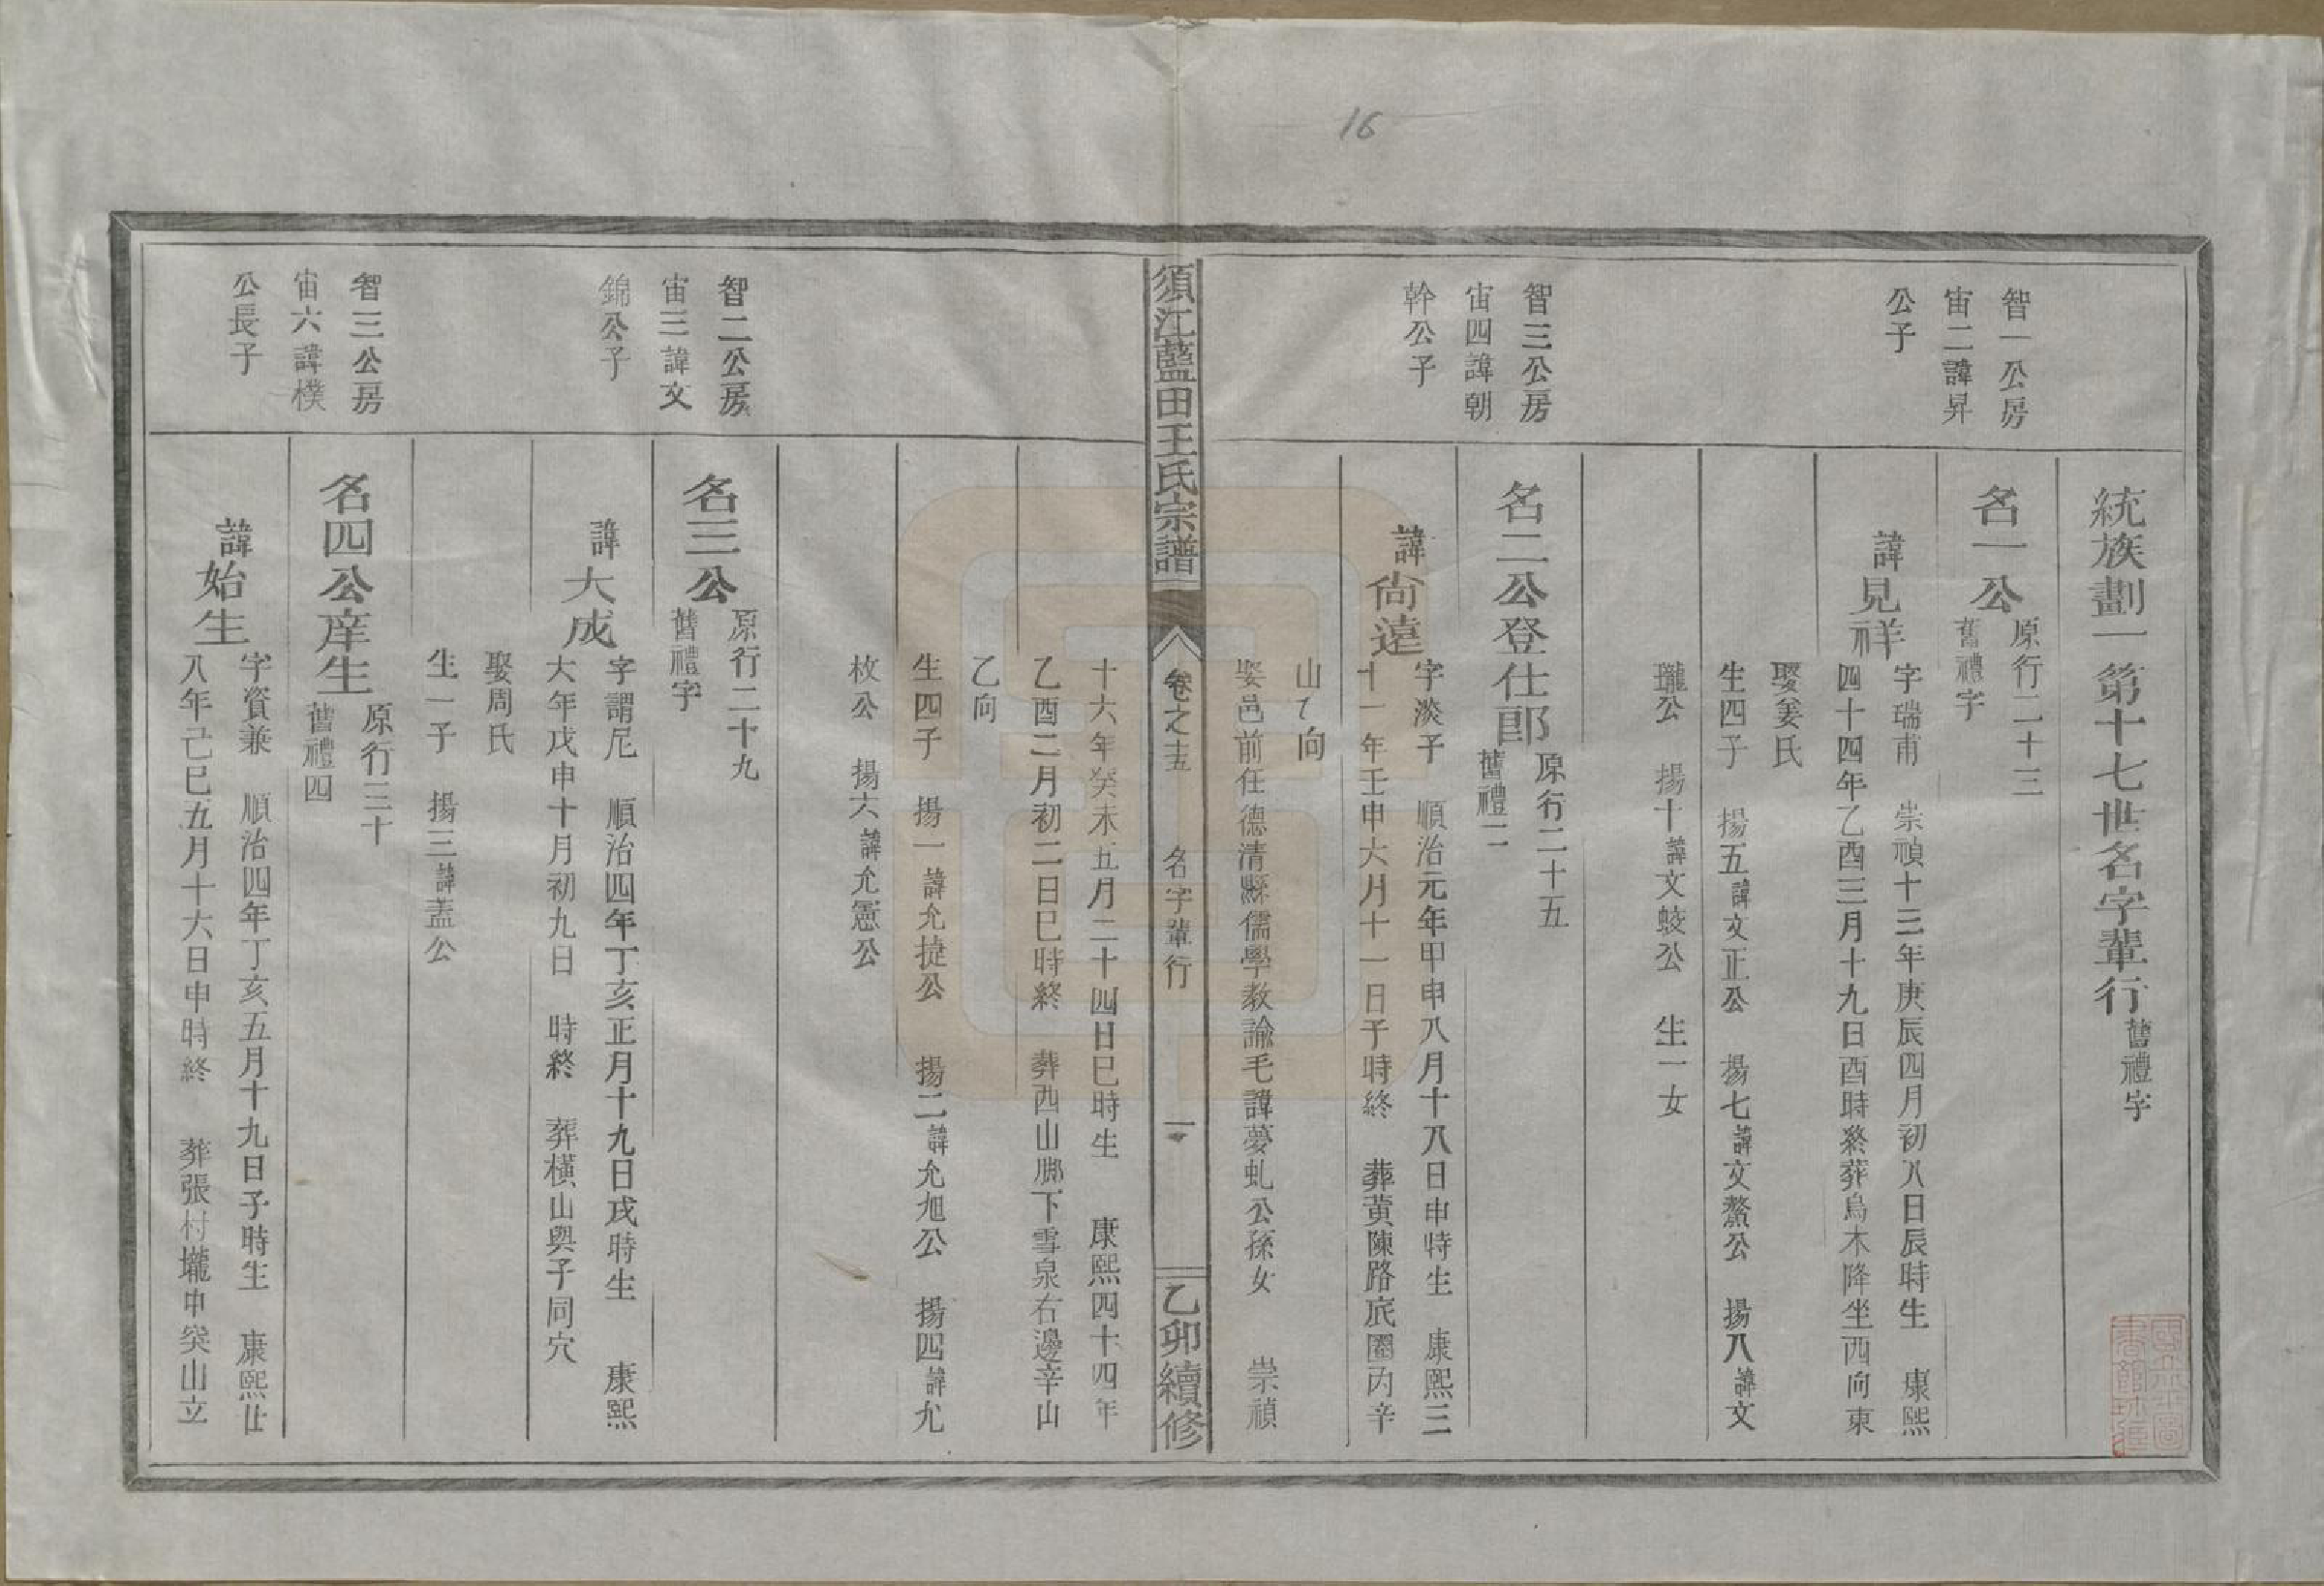 16
統族劃一第十七世名字輩行 舊禮字
智一公房
宙二諱昇
公子
名一公
原行二十三
舊禮字
諱見祥
字瑞甫 崇禎十三年庚辰四月初八日辰時生 康熙
四十四年乙酉三月十九日酉時終葬烏木降坐西向東
娶姜氏
生四子 揚五諱文正公 揚七諱文鰲公 揚八諱文
瓏公 揚十諱文蛟公 生一女
智三公房
宙四諱朝
幹公子
名二公登仕郎
原行二十五
舊禮二
諱尙遠
字淡子 順治元年甲申八月十八日申時生 康熙三
十一年壬申六月十一日子時終 葬黄陳路底圈丙辛
山乙向
娶邑前任德清縣儒學教諭毛諱夢虬公孫女 崇禎
須江藍田王氏宗譜
卷之十五 名字輩行 一
乙卯續修
十六年癸未五月二十四日巳時生 康熙四十四年
乙酉二月初二日巳時終 葬西山腳下雪泉右邊辛山
乙向
生四子 揚一諱允捷公 揚二諱允旭公 揚四諱允
枚公 揚六諱允憲公
智二公房
宙三諱文
錦公子
名三公
原行二十九
舊禮字
諱大成
字謂尼 順治四年丁亥正月十九日戌時生 康熙
大年戊申十月初九日 時終 葬橫山與子同穴
娶周氏
生一子 揚三諱蓋公
智三公房
宙六諱樸
公長子
名四公庠生
原行三十
舊禮四
諱始生
字資兼 順治四年丁亥五月十九日子時生 康熙廿
八年己巳五月十六日申時終 葬張村壠中突山立